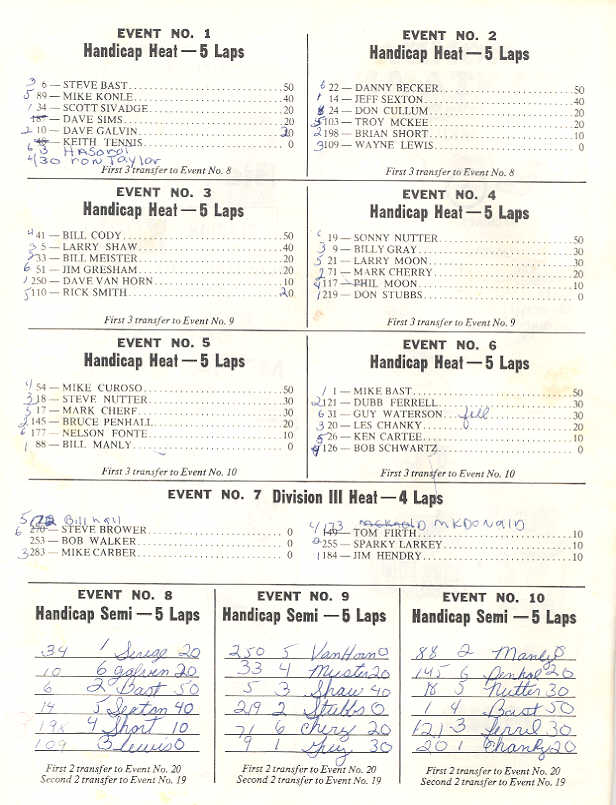 EVENT NO. 1
Handicap Heat — 5 Laps
3 6 — STEVE BAST 50
5 89 — MIKE KONLE 40
1 34 — SCOTT SIVADGE 20
DAVE SIMS 20
2 10 — DAVE GALVIN 20
KEITH TENNIS 0
6 3
4 30 ron Taylor
First 3 transfer to Event No. 8
EVENT NO. 2
Handicap Heat — 5 Laps
6 22 — DANNY BECKER 50
1 14 — JEFF SEXTON 40
24 — DON CULLUM 20
5 103 — TROY MCKEE 20
2 198 — BRIAN SHORT 10
3 109 — WAYNE LEWIS 0
First 3 transfer to Event No. 8
EVENT NO. 3
Handicap Heat — 5 Laps
4 41 — BILL CODY 50
3 5 — LARRY SHAW 40
33 — BILL MEISTER 20
6 51 — JIM GRESHAM 20
1 250 — DAVE VAN HORN 10
5 110 — RICK SMITH 20
First 3 transfer to Event No. 9
EVENT NO. 4
Handicap Heat — 5 Laps
19 — SONNY NUTTER 50
3 9 — BILLY GRAY 30
5 21 — LARRY MOON 30
2 71 — MARK CHERRY 20
4 117 — PHIL MOON 10
1 219 — DON STUBBS 0
First 3 transfer to Event No. 9
EVENT NO. 5
Handicap Heat — 5 Laps
4 54 — MIKE CUROSO 50
3 18 — STEVE NUTTER 30
5 17 — MARK CHERF 30
2 145 — BRUCE PENHALL 20
6 177 — NELSON FONTE 10
1 88 — BILL MANLY 0
First 3 transfer to Event No. 10
EVENT NO. 6
Handicap Heat — 5 Laps
1 1 — MIKE BAST 50
2 121 — DUBB FERRELL 30
6 31 — GUY WATERSON fell 30
3 20 — LES CHANKY 20
5 26 — KEN CARTEE 10
4 126 — BOB SCHWARTZ 0
First 3 transfer to Event No. 10
EVENT NO. 7 Division III Heat — 4 Laps
5 172 Bill hall
6 270 — STEVE BROWER 0
253 — BOB WALKER 0
3 283 — MIKE CARBER 0
4 173 MKDONALD
TOM FIRTH 10
2 255 — SPARKY LARKEY 10
1 184 — JIM HENDRY 10
EVENT NO. 8
Handicap Semi — 5 Laps
34 1 20
10 6 galvin 20
6 2 Bast 50
14 5 Sexton 40
198 4 Short 10
109 3 Lewis 0
First 2 transfer to Event No. 20
Second 2 transfer to Event No. 19
EVENT NO. 9
Handicap Semi — 5 Laps
250 5 VanHorn 0
33 4 Mister 20
5 3 Shaw 40
219 2 Stubbs 0
71 6 Chery 20
9 1 Grey 30
First 2 transfer to Event No. 20
Second 2 transfer to Event No. 19
EVENT NO. 10
Handicap Semi — 5 Laps
88 2 Manly 0
145 6 Penhal 20
18 5 Nutter 30
1 4 Bast 50
121 3 Ferril 30
20 1 Chanky 20
First 2 transfer to Event No. 20
Second 2 transfer to Event No. 19